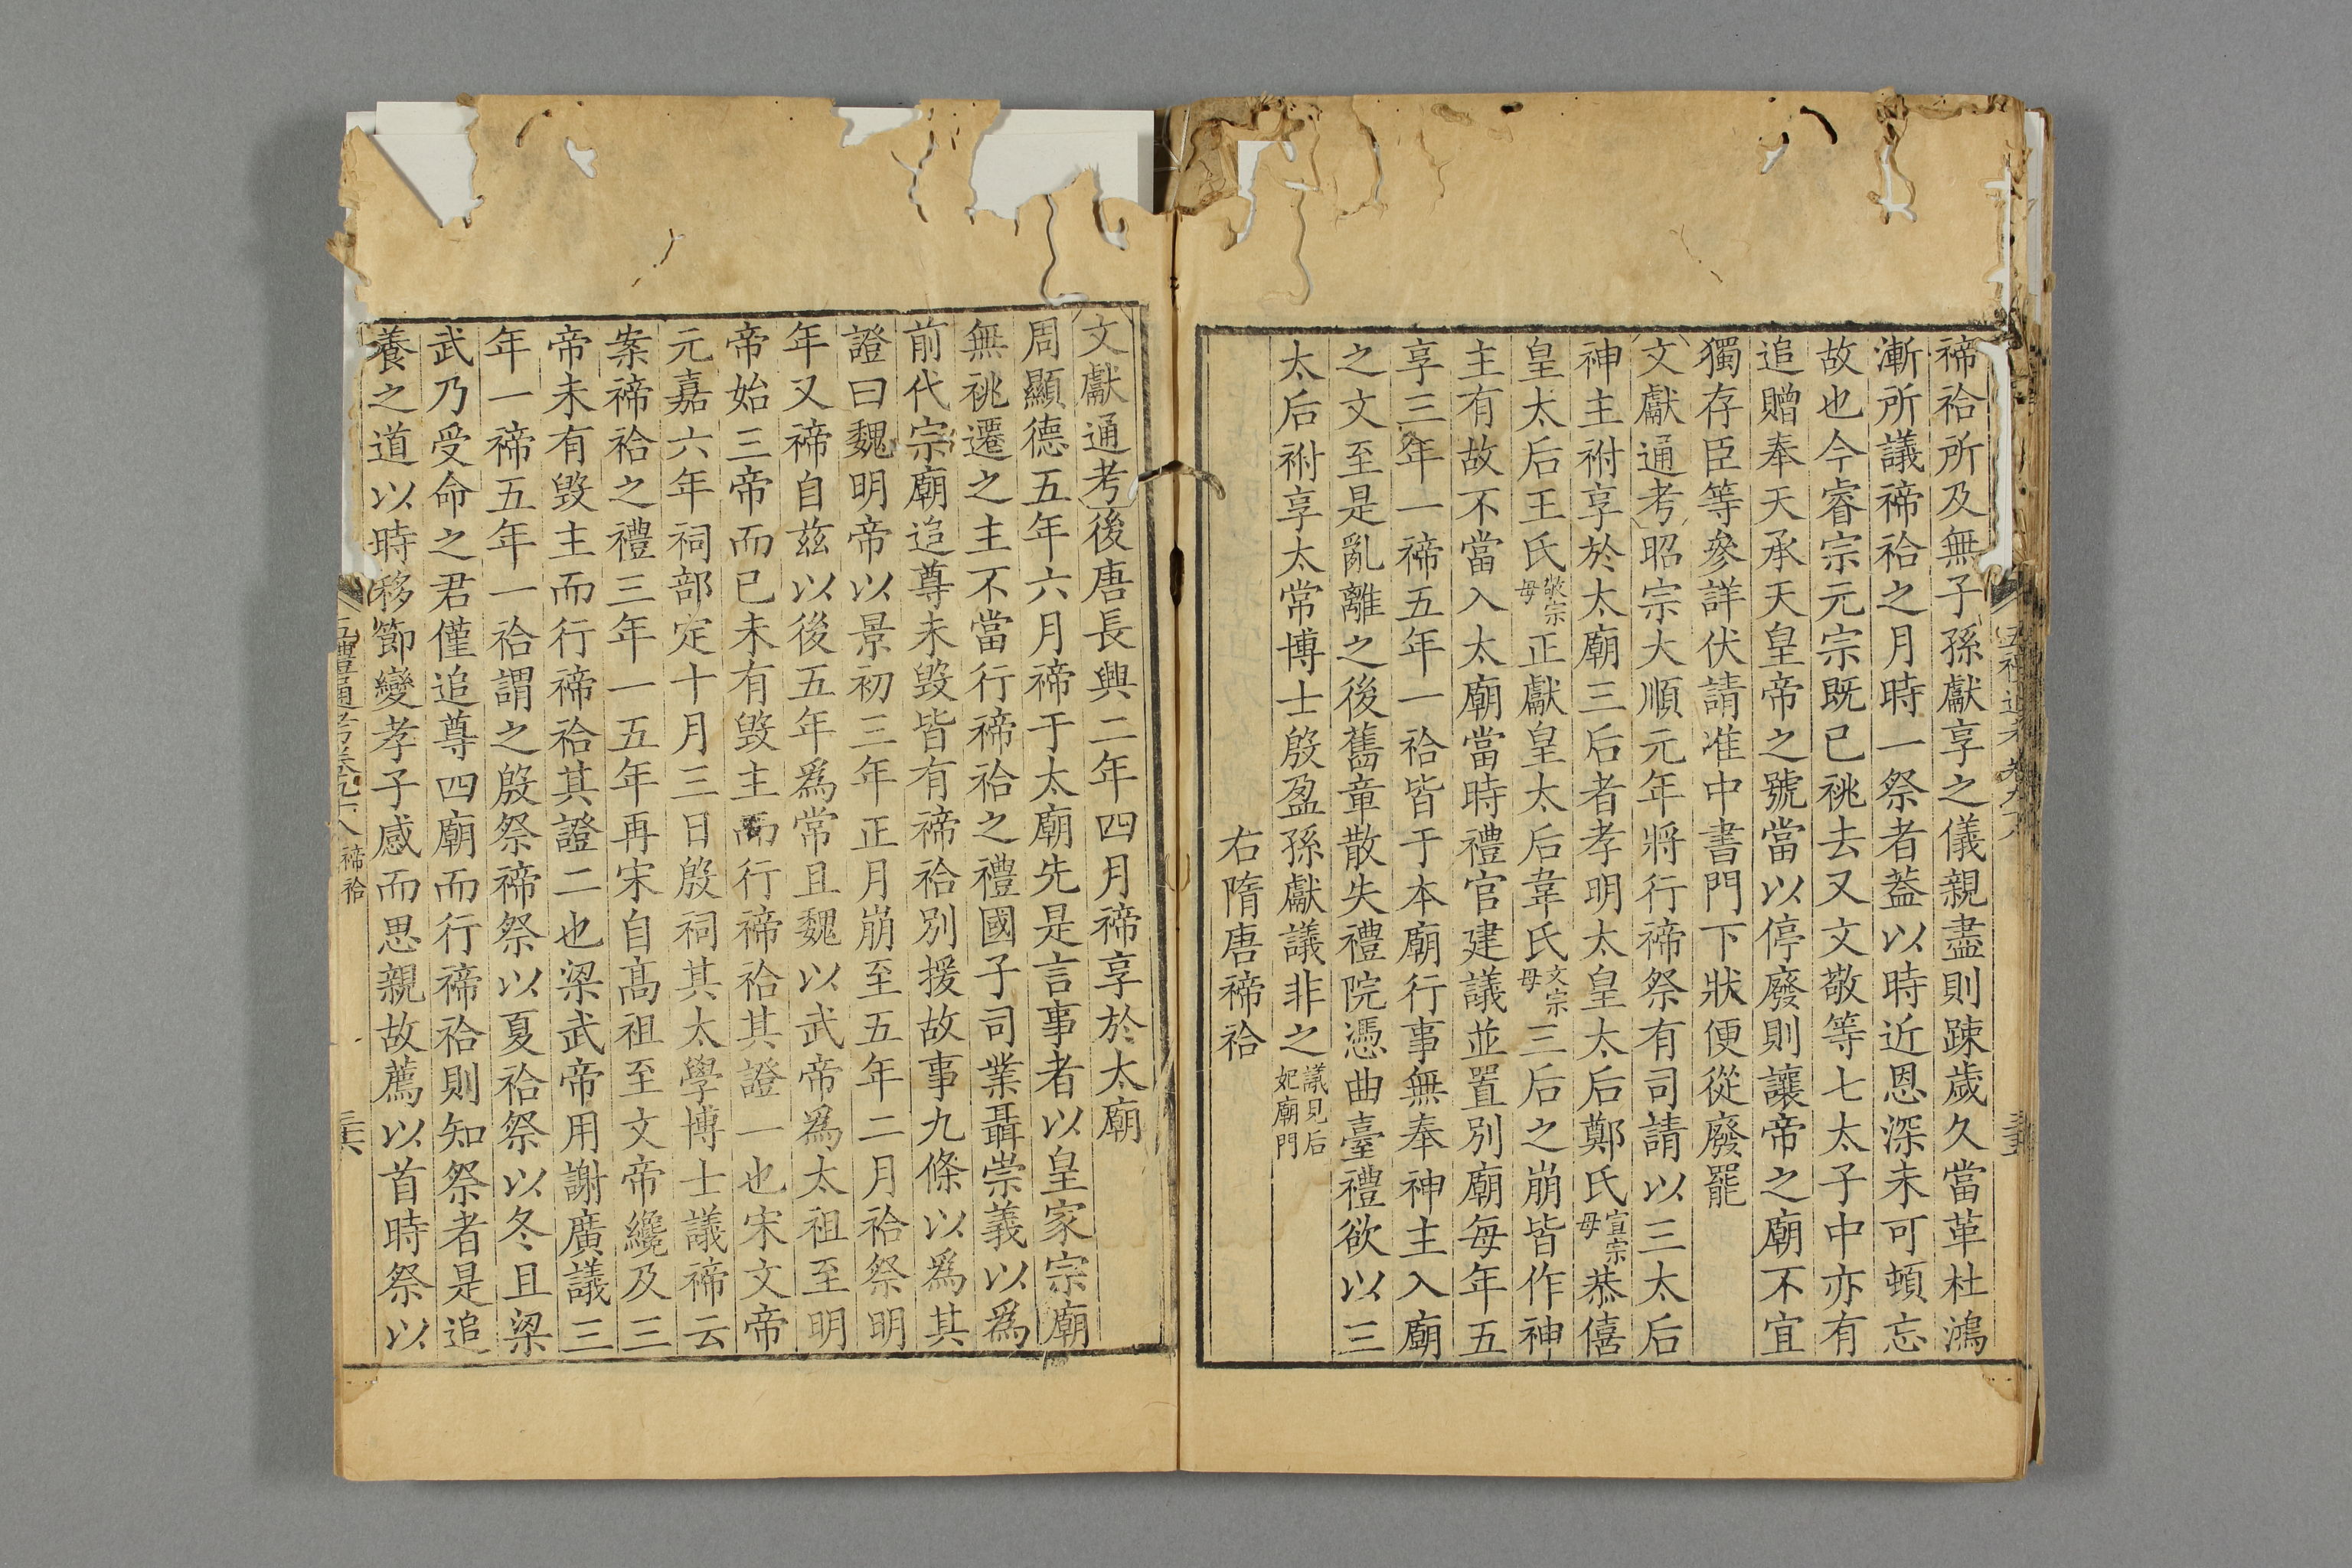 禘祫所及無子孫獻享之儀親盡則踈歲久當革杜鴻
漸所議禘祫之月時一祭者葢以時近恩深未可頓忘
故也今睿宗元宗既已祧去又文敬等七太子中亦有
追贈奉天承天皇帝之號當以停廢則讓帝之廟不宜
獨存臣等參詳伏請准中書門下狀便從廢罷
文獻通考昭宗大順元年將行禘祭有司請以三太后
神主祔享於太廟三后者孝明太皇太后鄭氏宣宗母恭僖
皇太后王氏敬宗母正獻皇太后韋氏文宗母三后之崩皆作神
主有故不當入太廟當時禮官建議並置別廟每年五
享三年一禘五年一祫皆于本廟行事無奉神主入廟
之文至是亂離之後舊章散失禮院憑曲臺禮欲以三
太后祔享太常博士殷盈孫獻議非之議見后妃廟門
右隋唐禘祫
文獻通考後唐長興二年四月禘享於太廟
周顯德五年六月禘于太廟先是言事者以皇家宗廟
無祧遷之主不當行禘祫之禮國子司業聶崇義以爲
前代宗廟追尊未毀皆有禘祫別援故事九條以爲其
證曰魏明帝以景初三年正月崩至五年二月祫祭明
年又禘自茲以後五年爲常且魏以武帝爲太祖至明
帝始三帝而已未有毀主而行禘祫其證一也宋文帝
元嘉六年祠部定十月三日殷祠其太學博士議禘云
案禘祫之禮三年一五年再宋自髙祖至文帝纔及三
帝未有毀主而行禘祫其證二也梁武帝用謝廣議三
年一禘五年一祫謂之殷祭禘祭以夏祫祭以冬且梁
武乃受命之君僅追尊四廟而行禘祫則知祭者是追
養之道以時移節變孝子感而思親故薦以首時祭以
五禮通考卷九十八 禘祫 三六